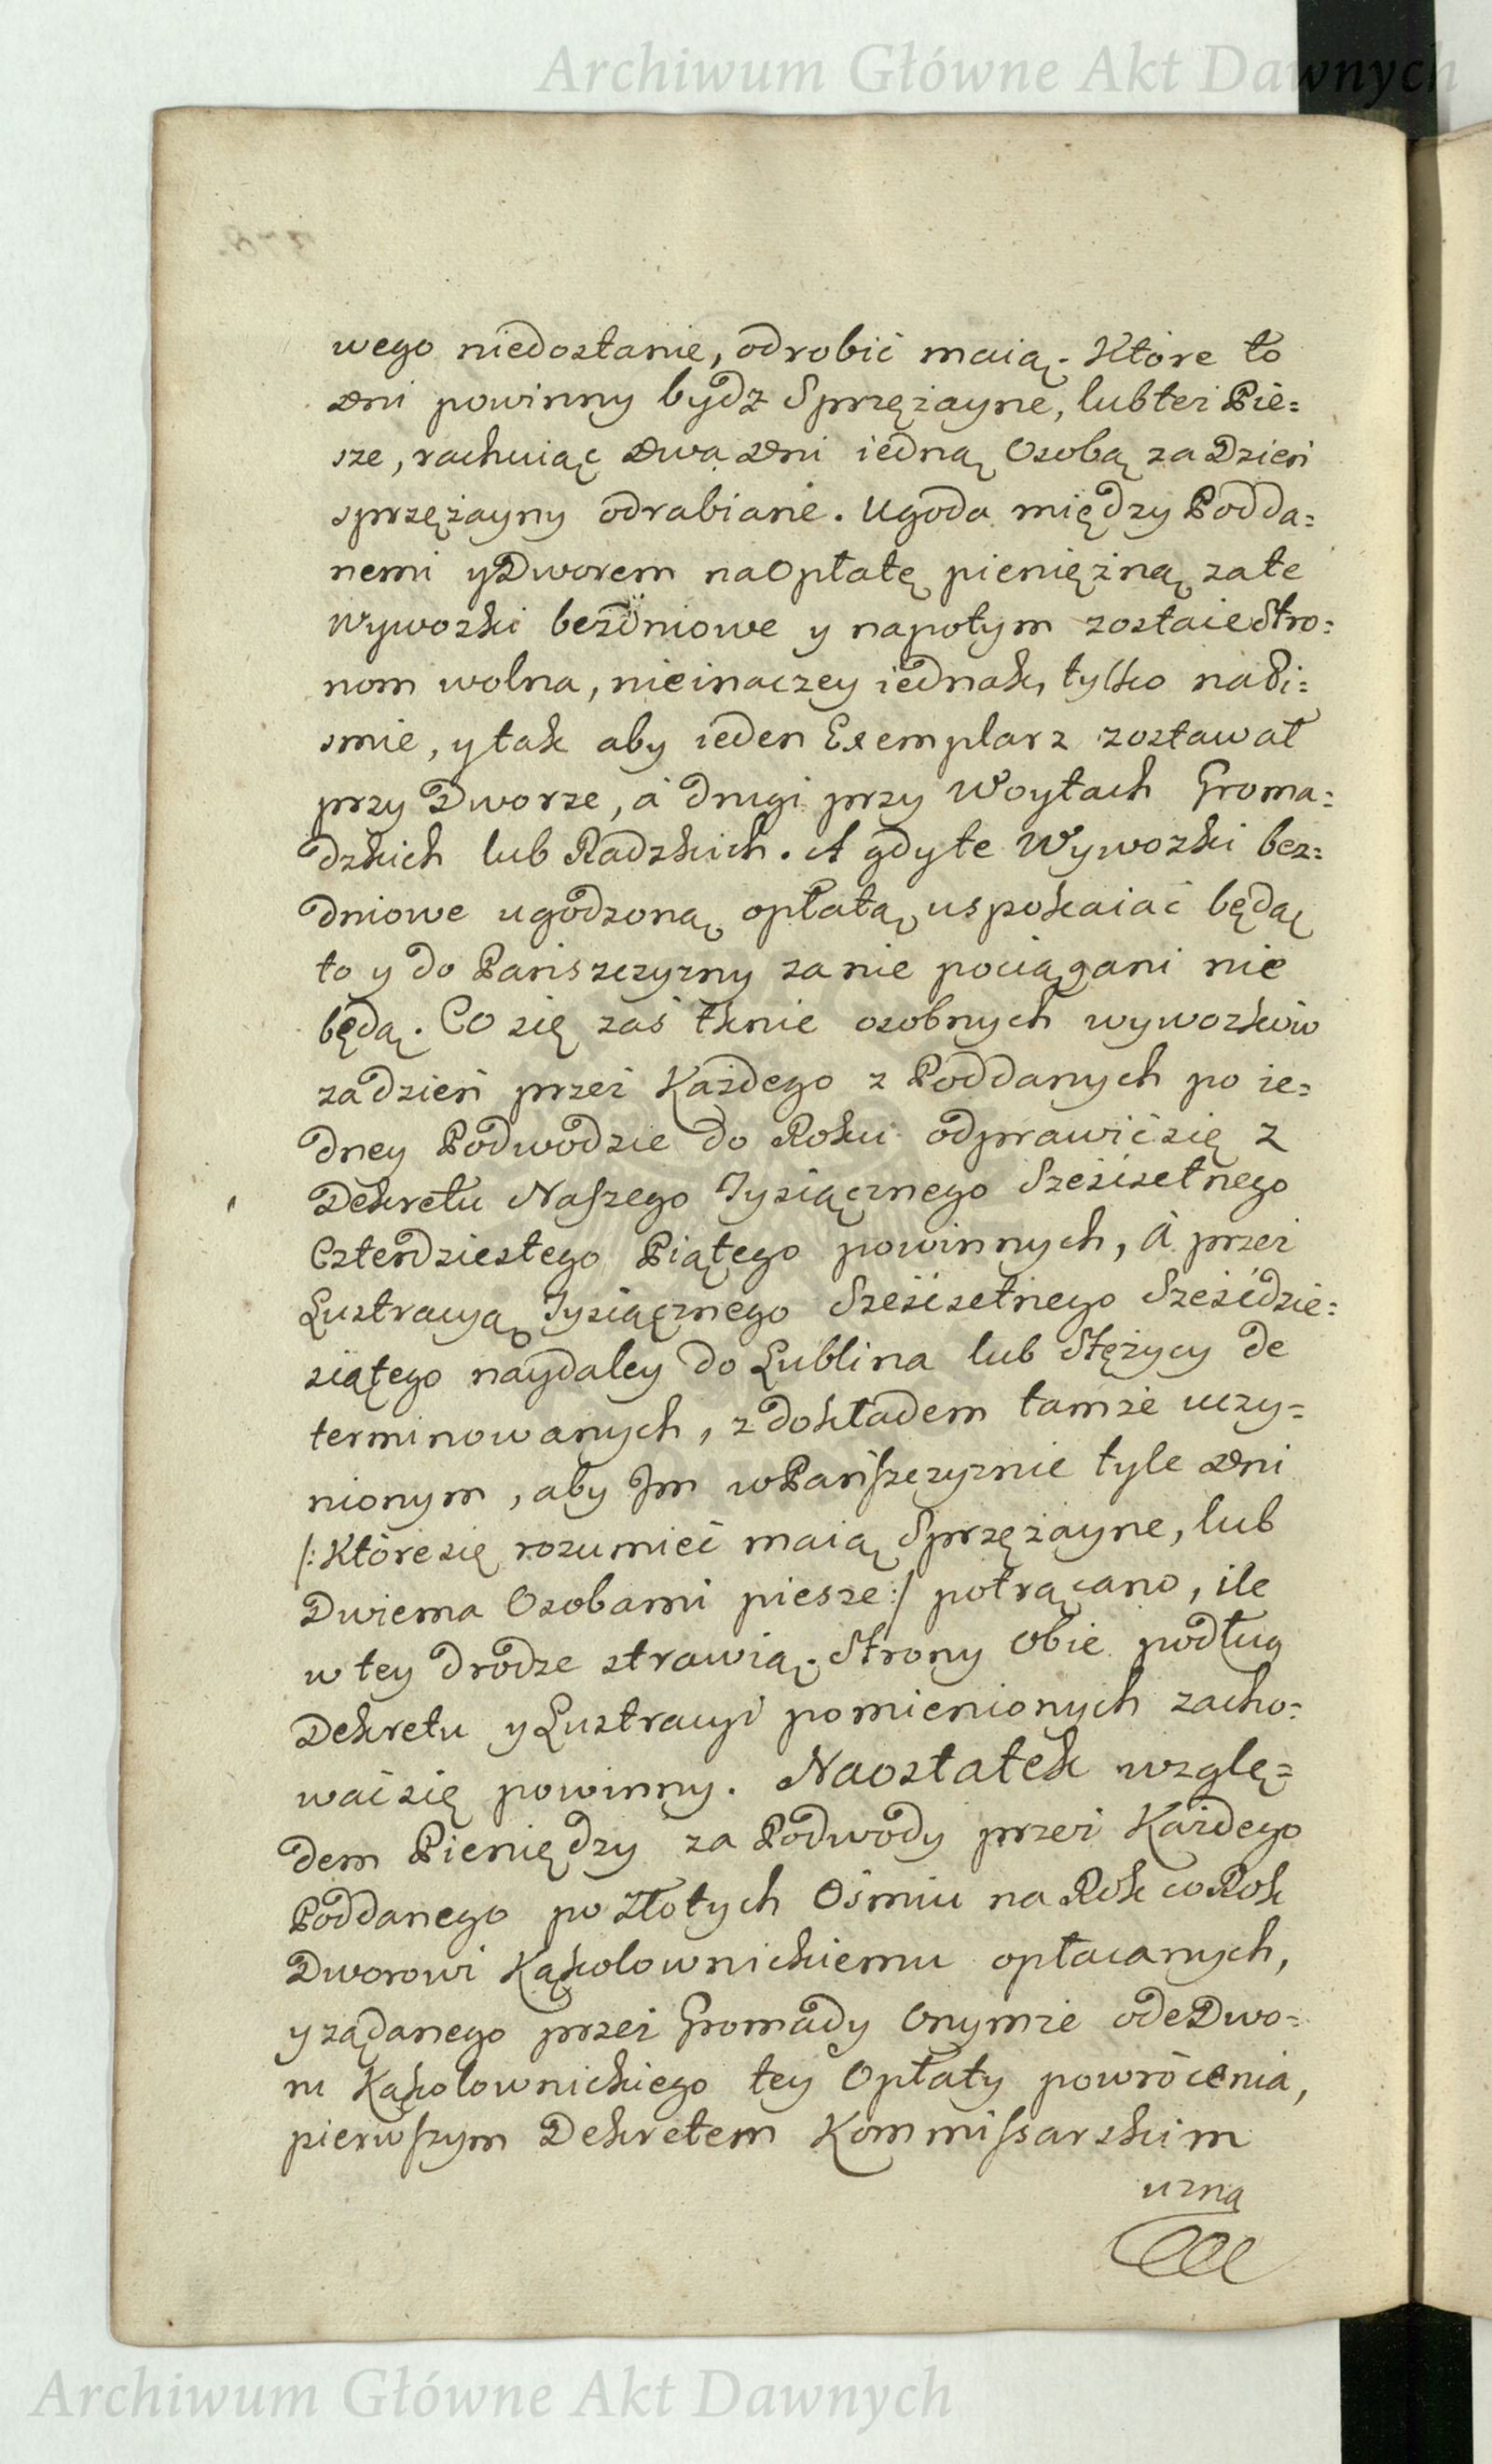 Archiwum Główne Akt Dawnych
wego niedostanie, odrobić maią. Które to
dni powinny bydz Sprzężayne, lub też Pie=
sze, rachuiąc dwa dni iedną Osobą za Dzień
sprzężayny odrabiane. Ugoda między Podda=
nemi y Dworem na Opłatę pieniężną za te
Wywozki bezdniowe y napotym zostaie Stro=
nom wolna, nieinaczey iednak, tylko na Pi=
smie, y tak aby ieden Exemplarz zostawał
przy Dworze, á drugi przy Woytach Groma=
dzkich lub Radzkich. A gdy te Wywozki bez=
dniowe ugodzoną opłatą uspokaiać będą
to y do Pańszczyzny za nie pociągani nie
będą. Co się zaś tknie osobnych wywozków
za dzień przez Każdego z Poddanych po ie=
dney Podwodzie do Roku odprawić się z
Dekretu Naszego Tysiącznego Sześćsetnego
Czterdziestego Piątego powinnych, á przez
Lustracyą Tysiącznego Sześćsetnego Sześćdzie=
siątego naydaley do Lublina lub Stężycy de
terminowanych, z dokładem tamże uczy=
nionym, aby Im w Pańszczyznie tyle dni
/: Które się rozumieć maią Sprzężayne, lub
Dwiema Osobami piesze :/ potrącano, ile
w tey drodze strawią. Strony Obie podług
Dekretu y Lustracyi pomienionych zacho=
wać się powinny. Naostatek wzglę=
dem Pieniędzy za Podwody przez Każdego
Poddanego po złotych Ośmiu na Rok co Rok
Dworowi Kąkolownickiemu opłacanych,
y żądanego przez Gromady Onymże ode Dwo=
ru Kąkolownickiego tey Opłaty powrócenia,
pierwszym Dekretem Kommissarskim
uzna
Archiwum Główne Akt Dawnych